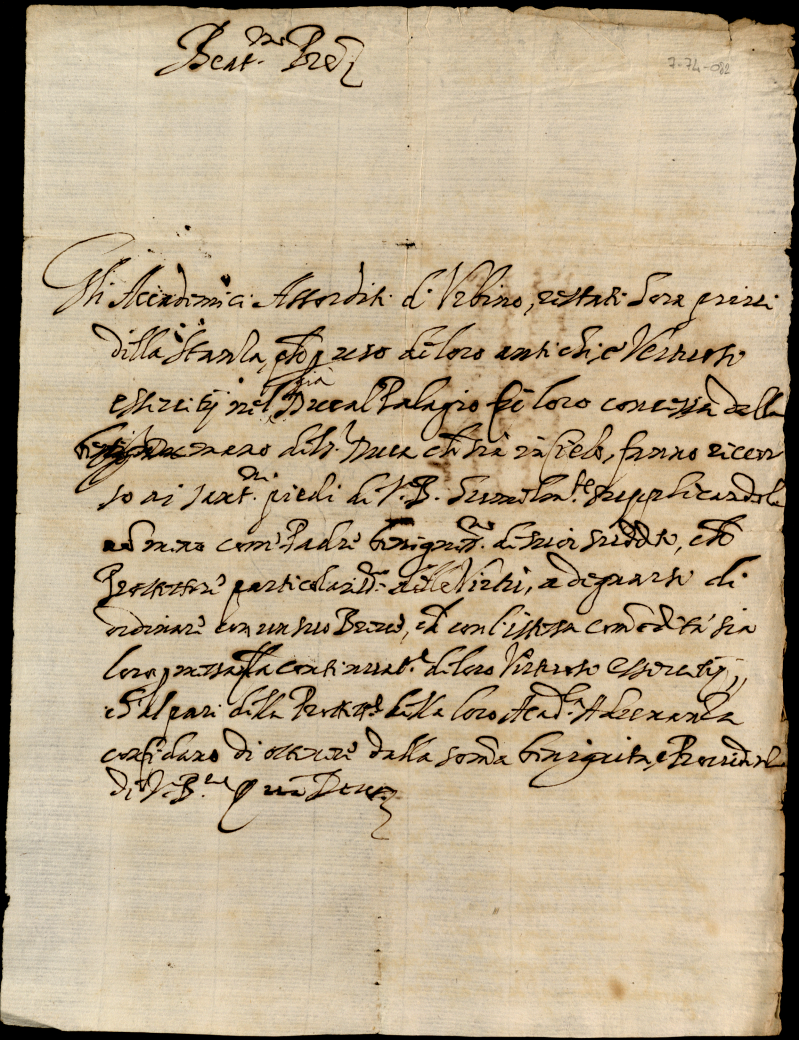 Beat.mo Pre
7-74-082
Gli Academici Assorditi di Urbino, restati hora privi
della Stanza, ch' uso de loro antichi, e Vertuosi
essercitij nel già Ducal Palagio loro concessa della
mano del S.r Duca che sia in Cielo, fanno ricor
so ai sant.mi piedi di V. B. humilm.te supplicandola
come Padre benigniss.mo de suoi sudditi, et
Protettore particolariss.o delle Virtù, a degnarsi di
ordinare con un suo Breve, ch' con l'istessa comodità sia
loro permessa la continuat.e di loro Virtuosi essercitij,
ch' al pari della Protett.e della loro Acad.a
confidano di ottenere dalla somma benignità, e Providenza
di V. B.ne Quam Deus